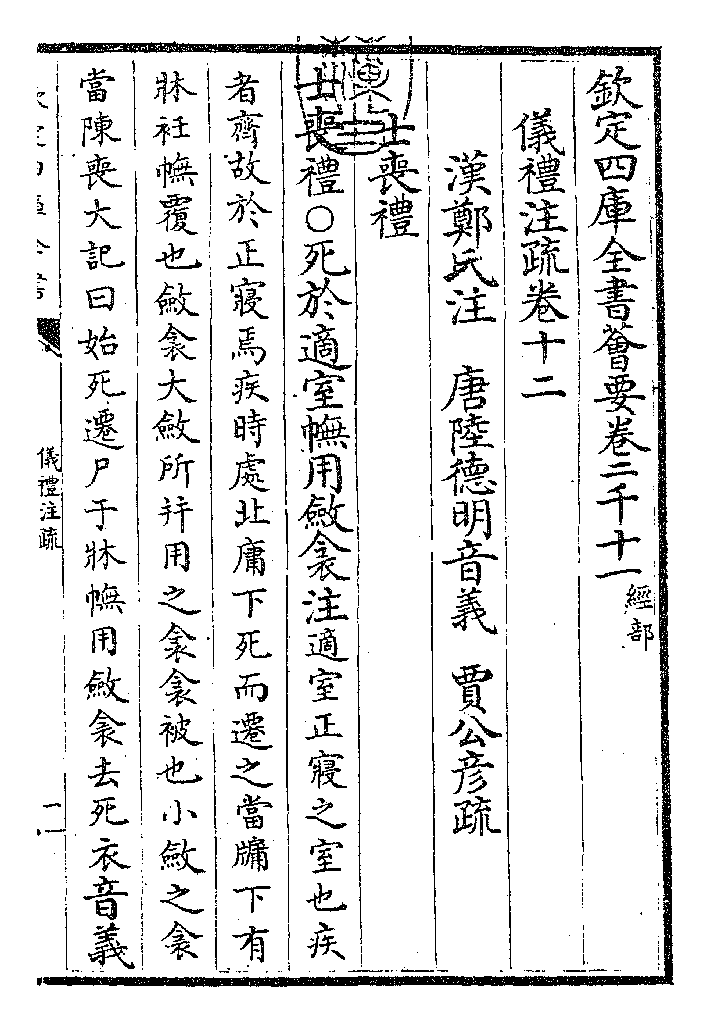 欽定四庫全書薈要卷二千十一 經部
儀禮注疏卷十二
漢鄭氏注 唐陸德明音義 賈公彦疏
士喪禮
士喪禮○死於適室幠用斂衾注適室正寢之室也疾
者齊故於正寢焉疾時處北墉下死而遷之當牖下有
牀衽幠覆也斂衾大斂所并用之衾衾被也小斂之衾
當陳喪大記曰始死遷尸于牀幠用斂衾去死衣音義
儀禮注疏